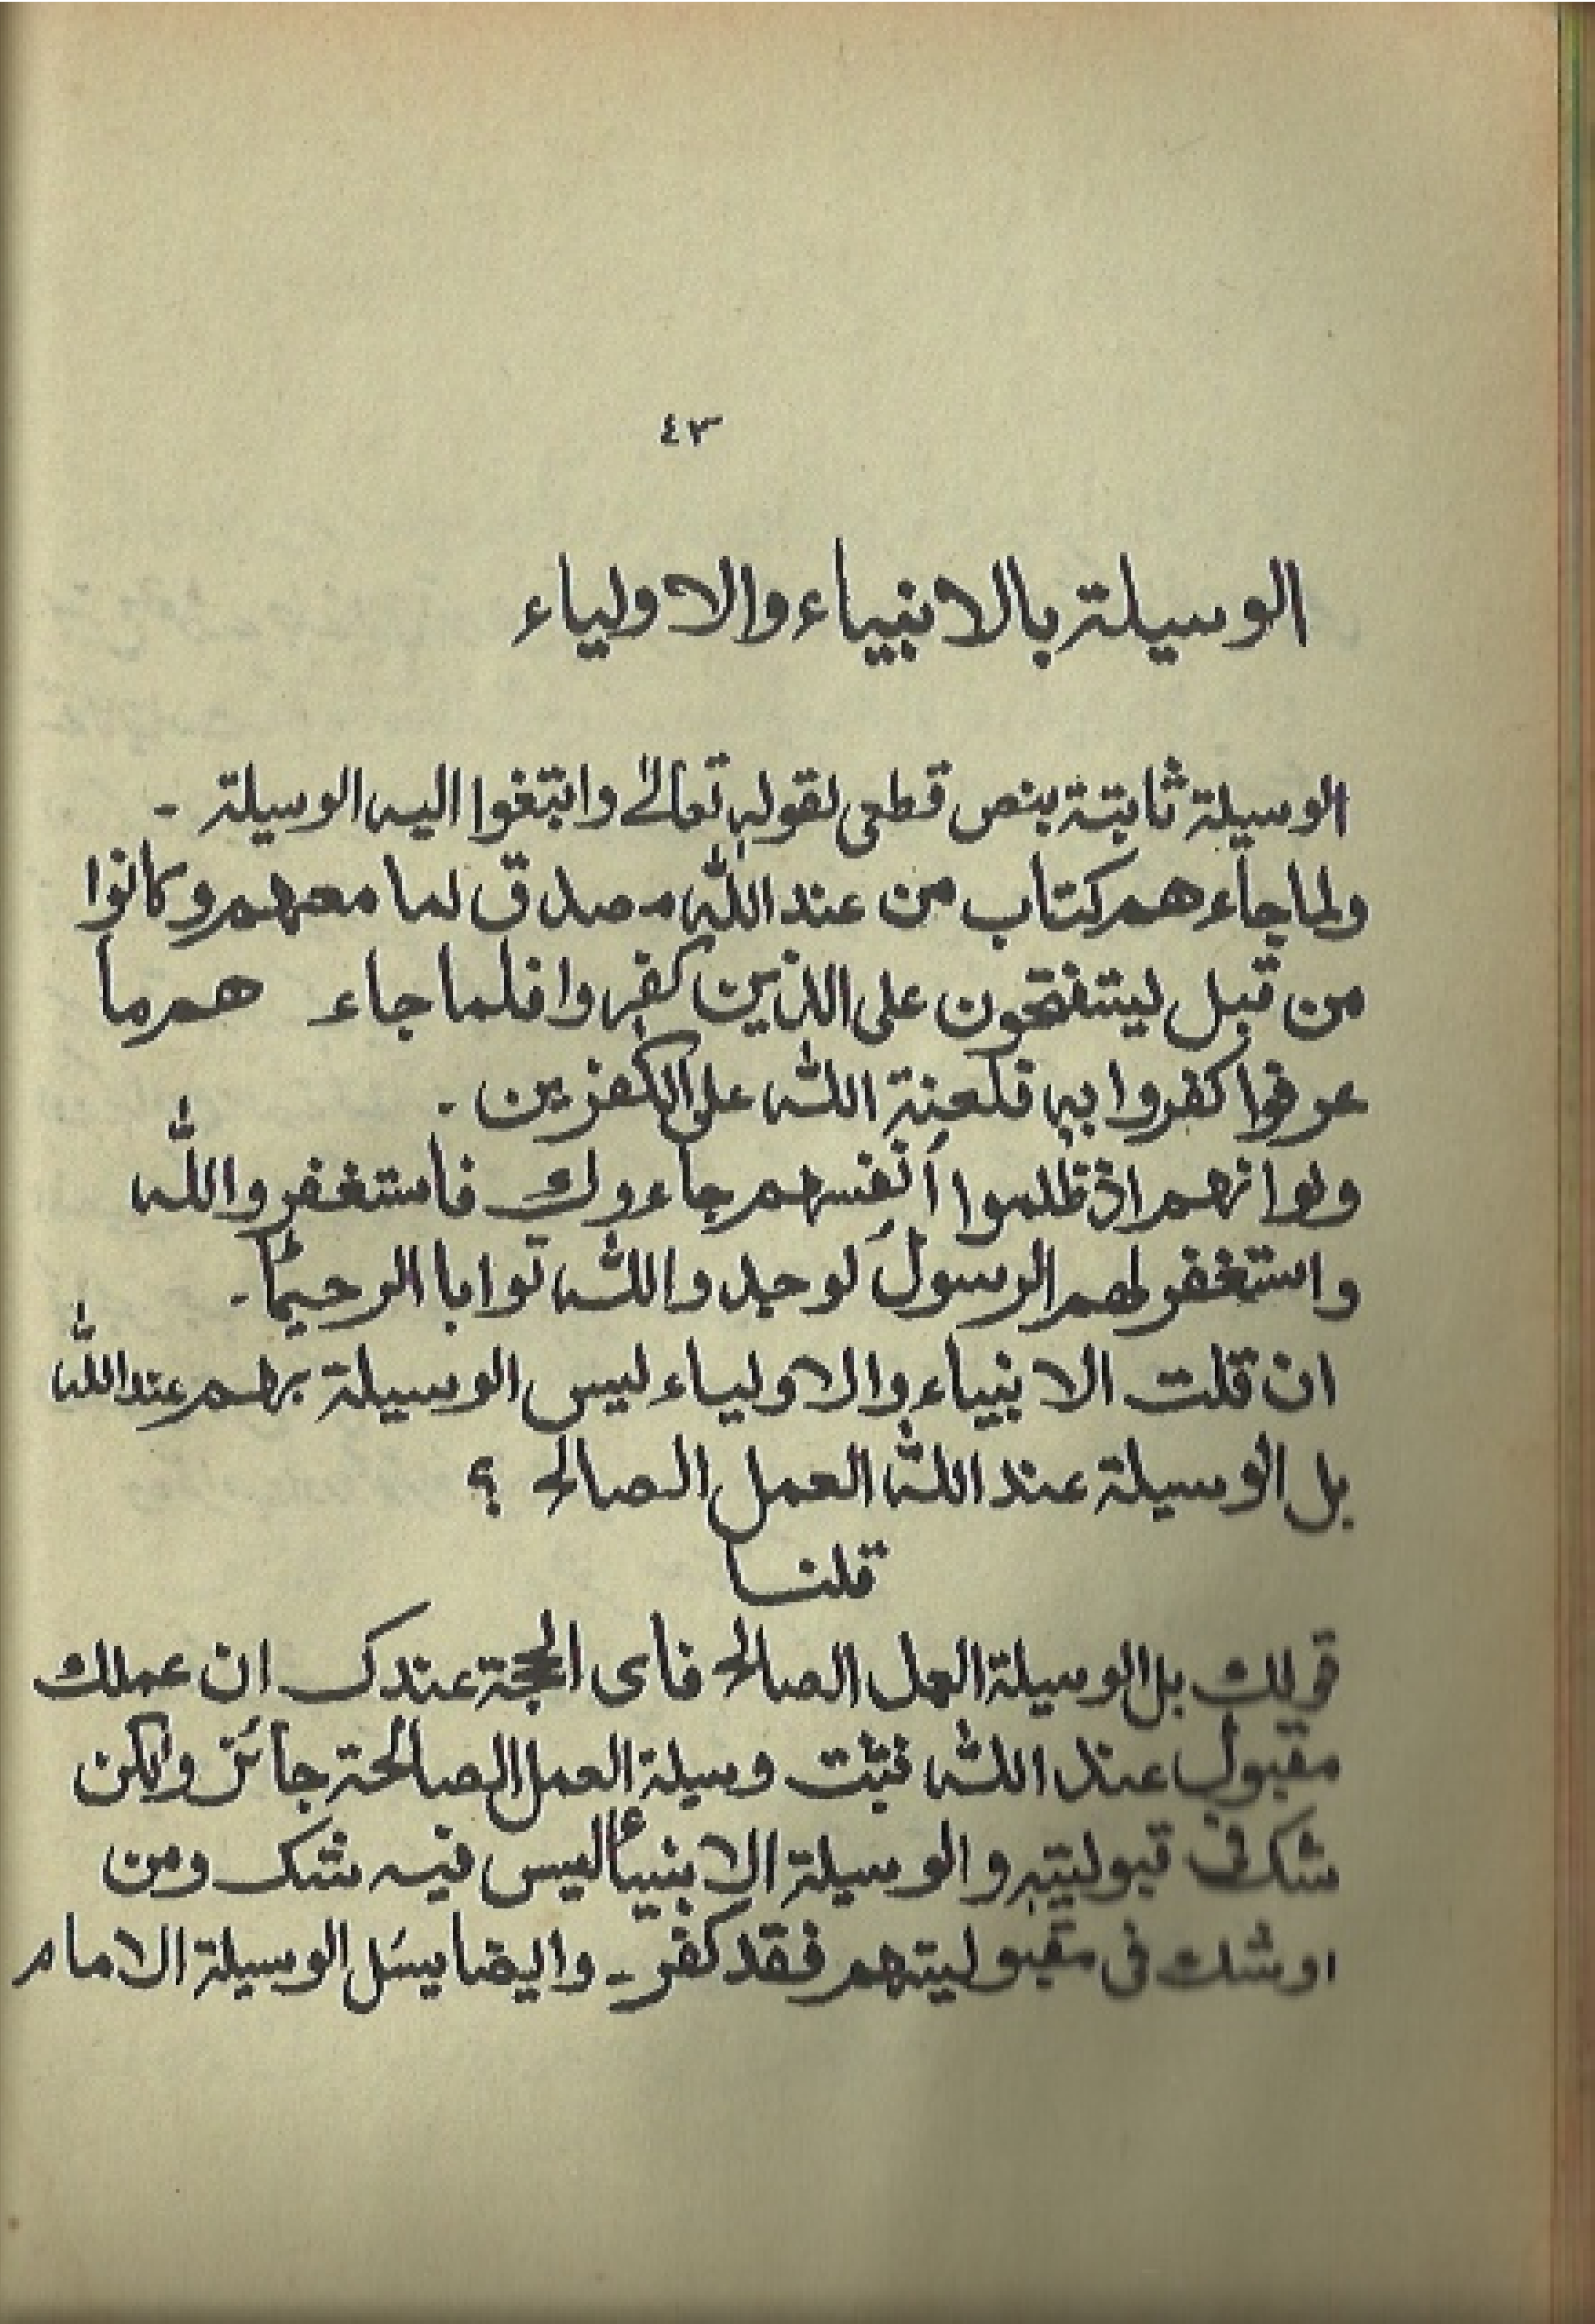 ٤٣
الوسيلة بالانبياء والاولياء
الوسيلة ثابتة بنص قطعى لقوله تعالىٰ وابتغوا اليه الوسيلة ۔
ولما جاء هم كتاب من عند الله مصدق لما معهم وكانوا
من قبل ليتفتحون على الذين كفروا فلما جاء هم ما
عرفوا كفروا به فلعنة الله على الكفرين ۔
ولو انهم اذ ظلموا اَنفِسهم جاءوك فاستغفر والله
واستغفر لهم الرسولَ لوجد والله توابا الرحيمًا ۔
ان قلت الانبياء والاولياء ليس الوسيلة بهم عند الله
بل الوسيلة عند الله العمل الصالح ؟
قلنا
قولك بل الوسيلة العمل الصالح فاى الحجة عندك ان عملك
مقبول عند الله فثبت وسيلة العمل الصالحة جائز ولكن
شك فى قبوليته والوسيلة الانبيأ ليس فيه شك ومن
اوشك فى مقبوليتهم فقد كفر ۔ وايضا يسئل الوسيلة الامام